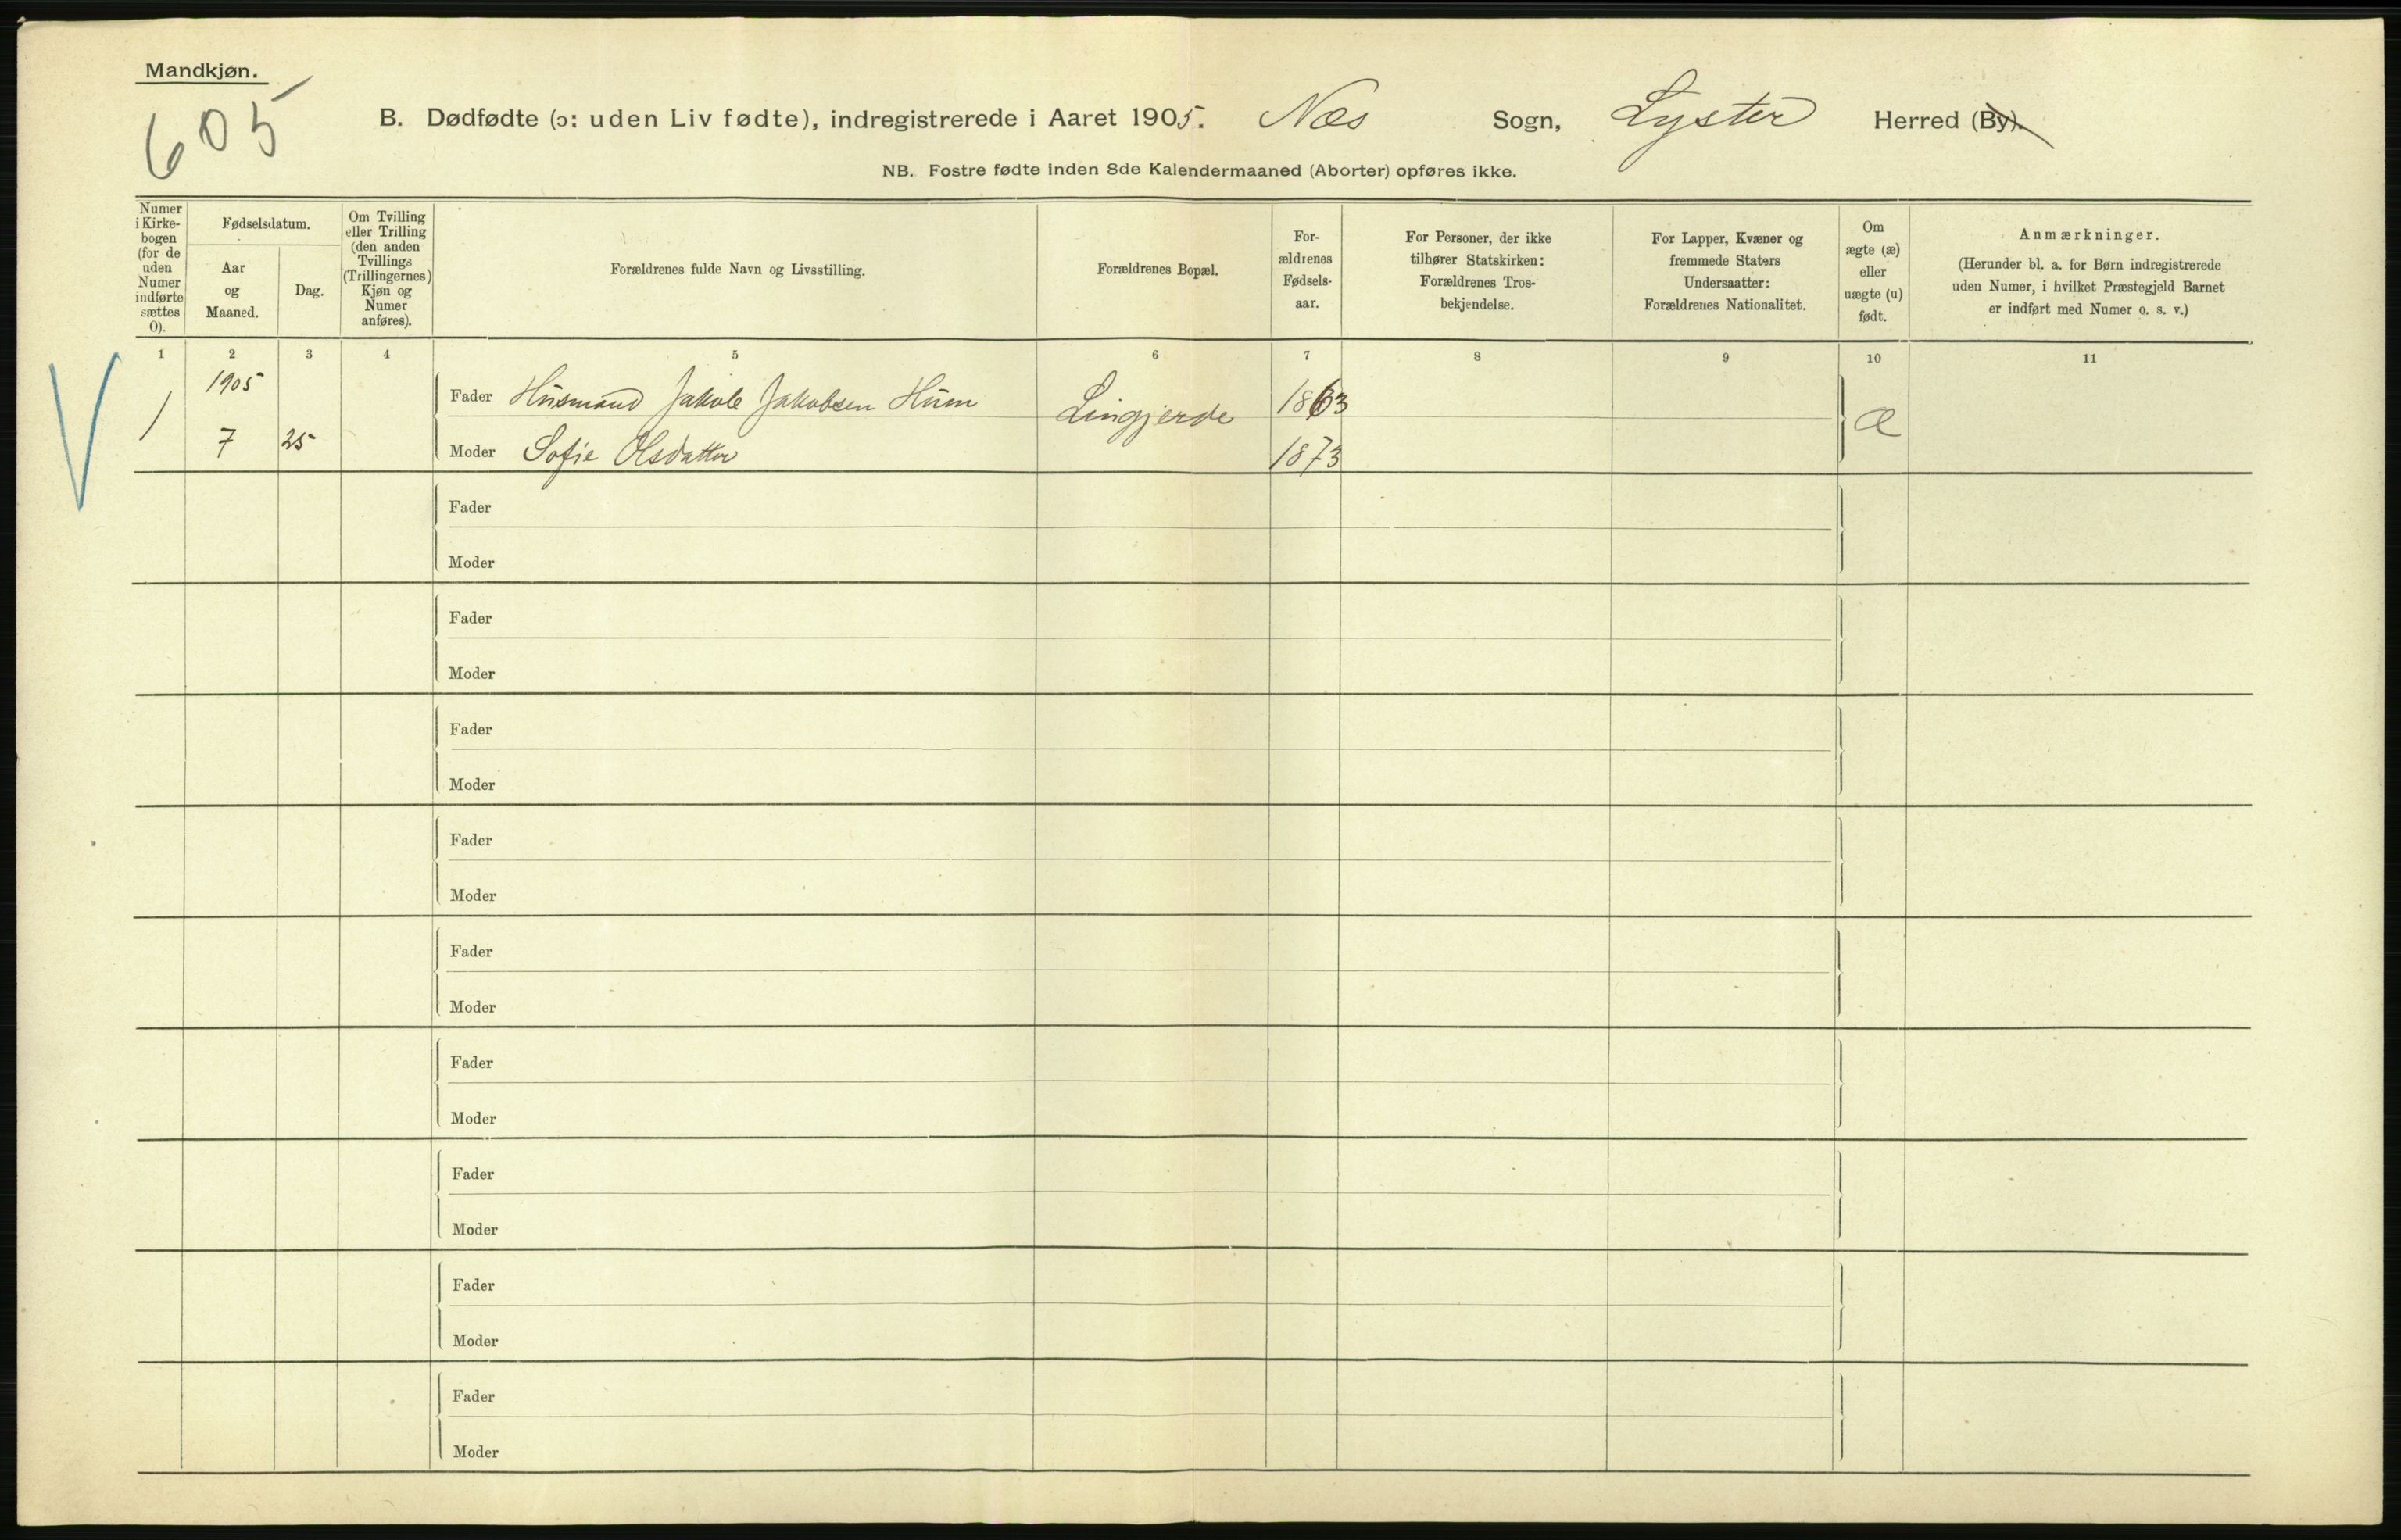 Mandkjøn.
605
B. Dødfødte (ɔ: uden Liv fødte), indregistrerede i Aaret 1905. Næs Sogn, Lyster Herred (By).
NB. Fostre fødte inden 8de Kalendermaaned (Aborter) opføres ikke.
Numer i Kirkebogen (for de uden Numer indførte sættes 0).
Fødselsdatum.
Aar og Maaned.
Dag.
Om Tvilling eller Trilling (den anden Tvillings (Trillingernes) Kjøn og Numer anføres).
Forældrenes fulde Navn og Livsstilling.
Forældrenes Bopæl.
For-
ældrenes
Fødsels-
aar.
For Personer, der ikke
tilhører Statskirken:
Forældrenes Tros-
bekjendelse.
For Lapper, Kvæner og
fremmede Staters
Undersaatter:
Forældrenes Nationalitet.
Om
ægte (æ)
eller
uægte (u)
født.
Anmærkninger.
(Herunder bl. a. for Børn indregistrerede
uden Numer, i hvilket Præstegjeld Barnet
er indført med Numer o. s. v.)
1 2 3 4 5 6 7 8 9 10 11
1905
Fader Husmand Jakob Jakobsen Hum 1863
1 Lingjerde æ
7 25 Moder Sofie Olsdatter 1873
Fader
Moder
Fader
Moder
Fader
Moder
Fader
Moder
Fader
Moder
Fader
Moder
Fader
Moder
Fader
Moder
Fader
Moder